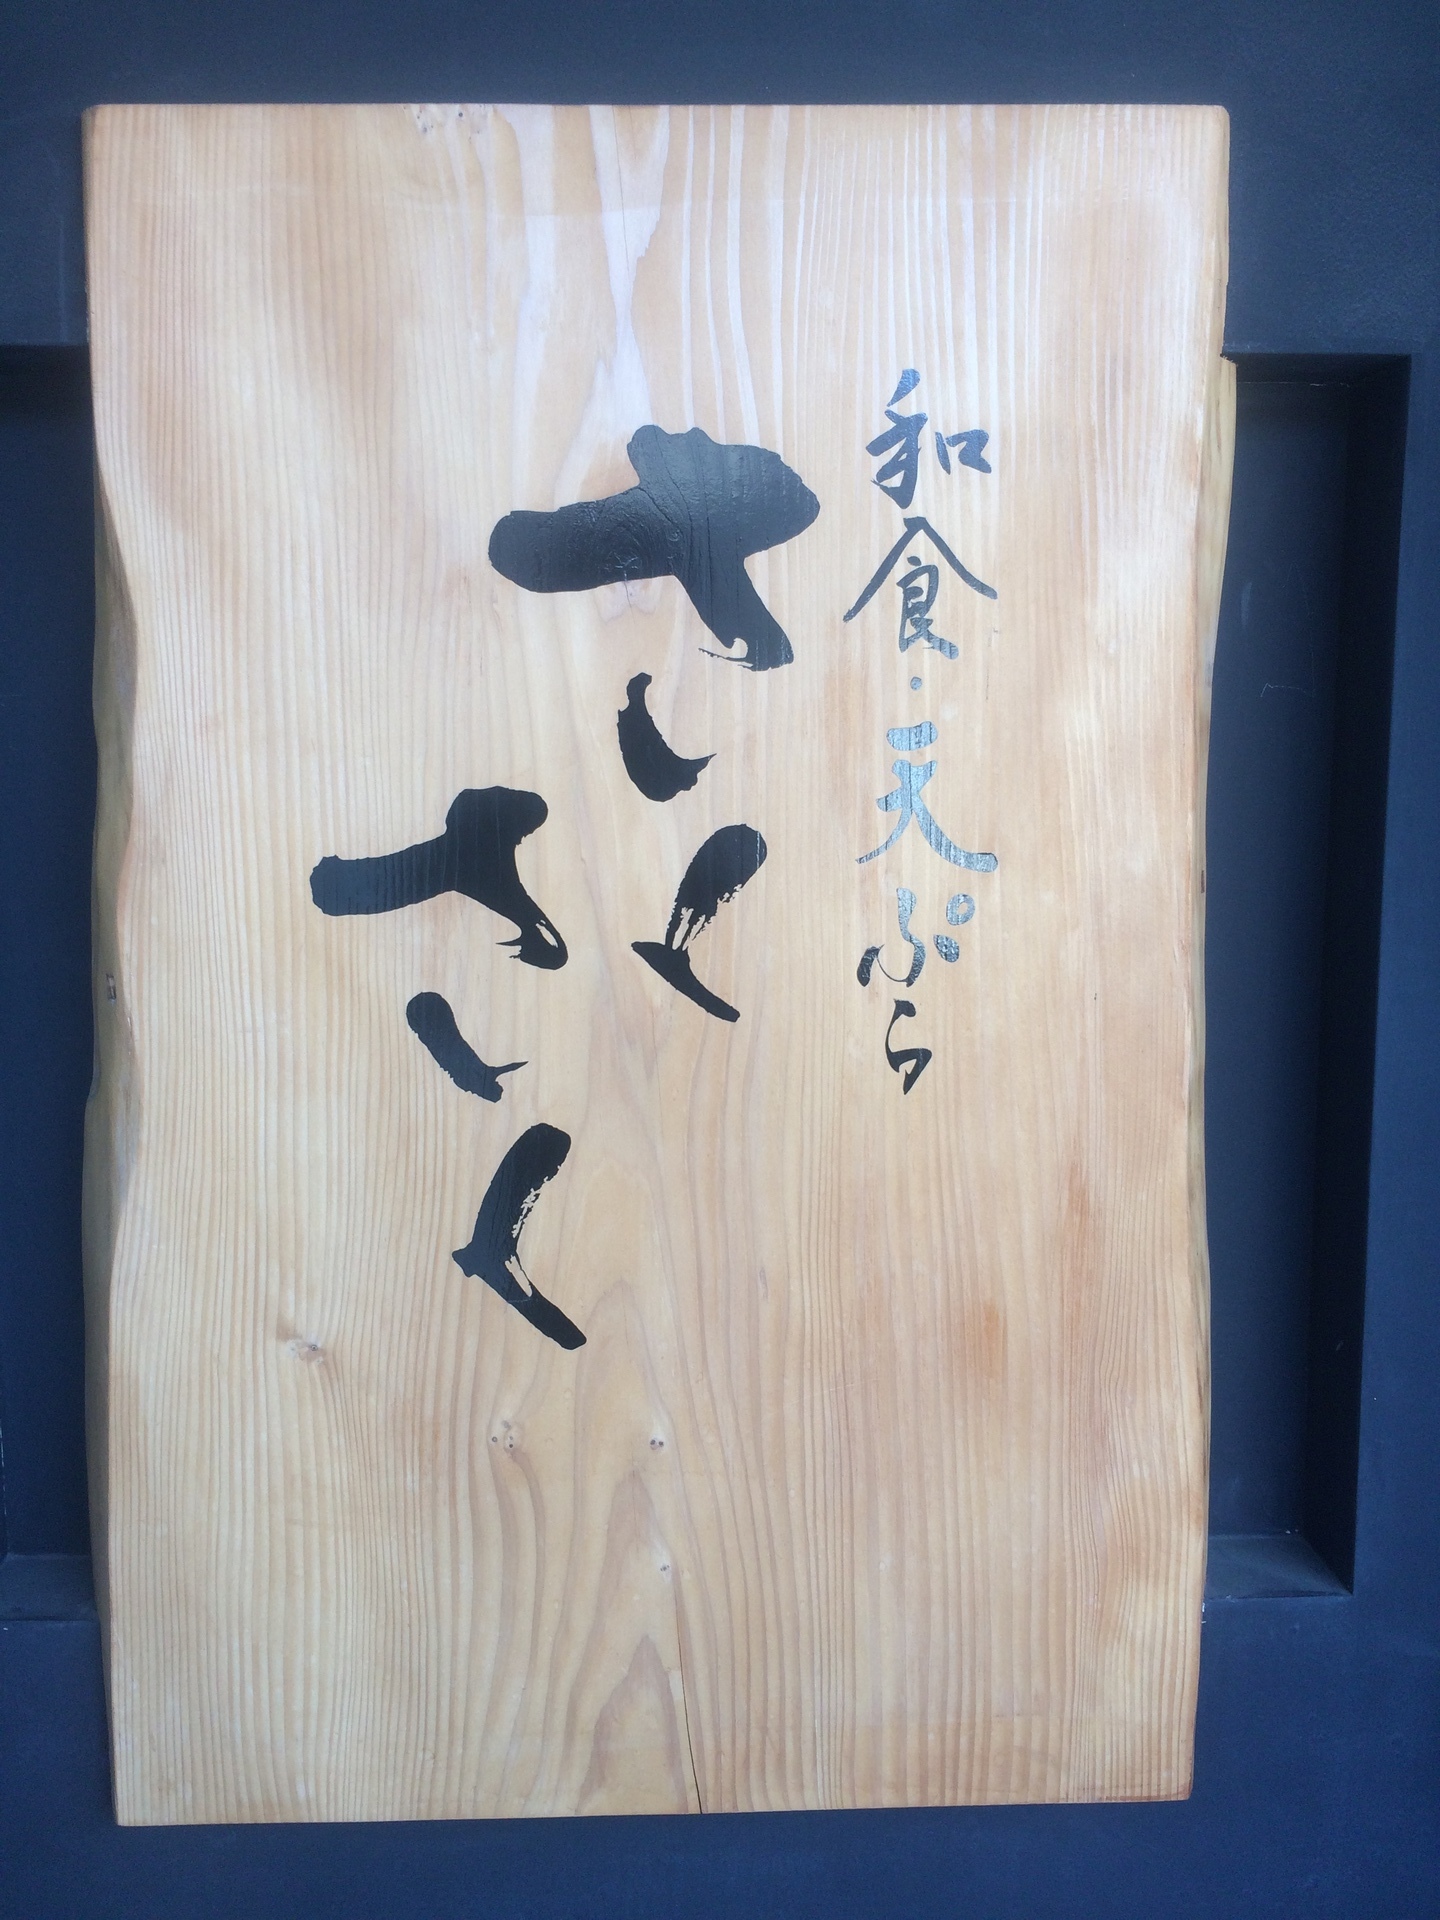 和食・天ぷら
さく
さく